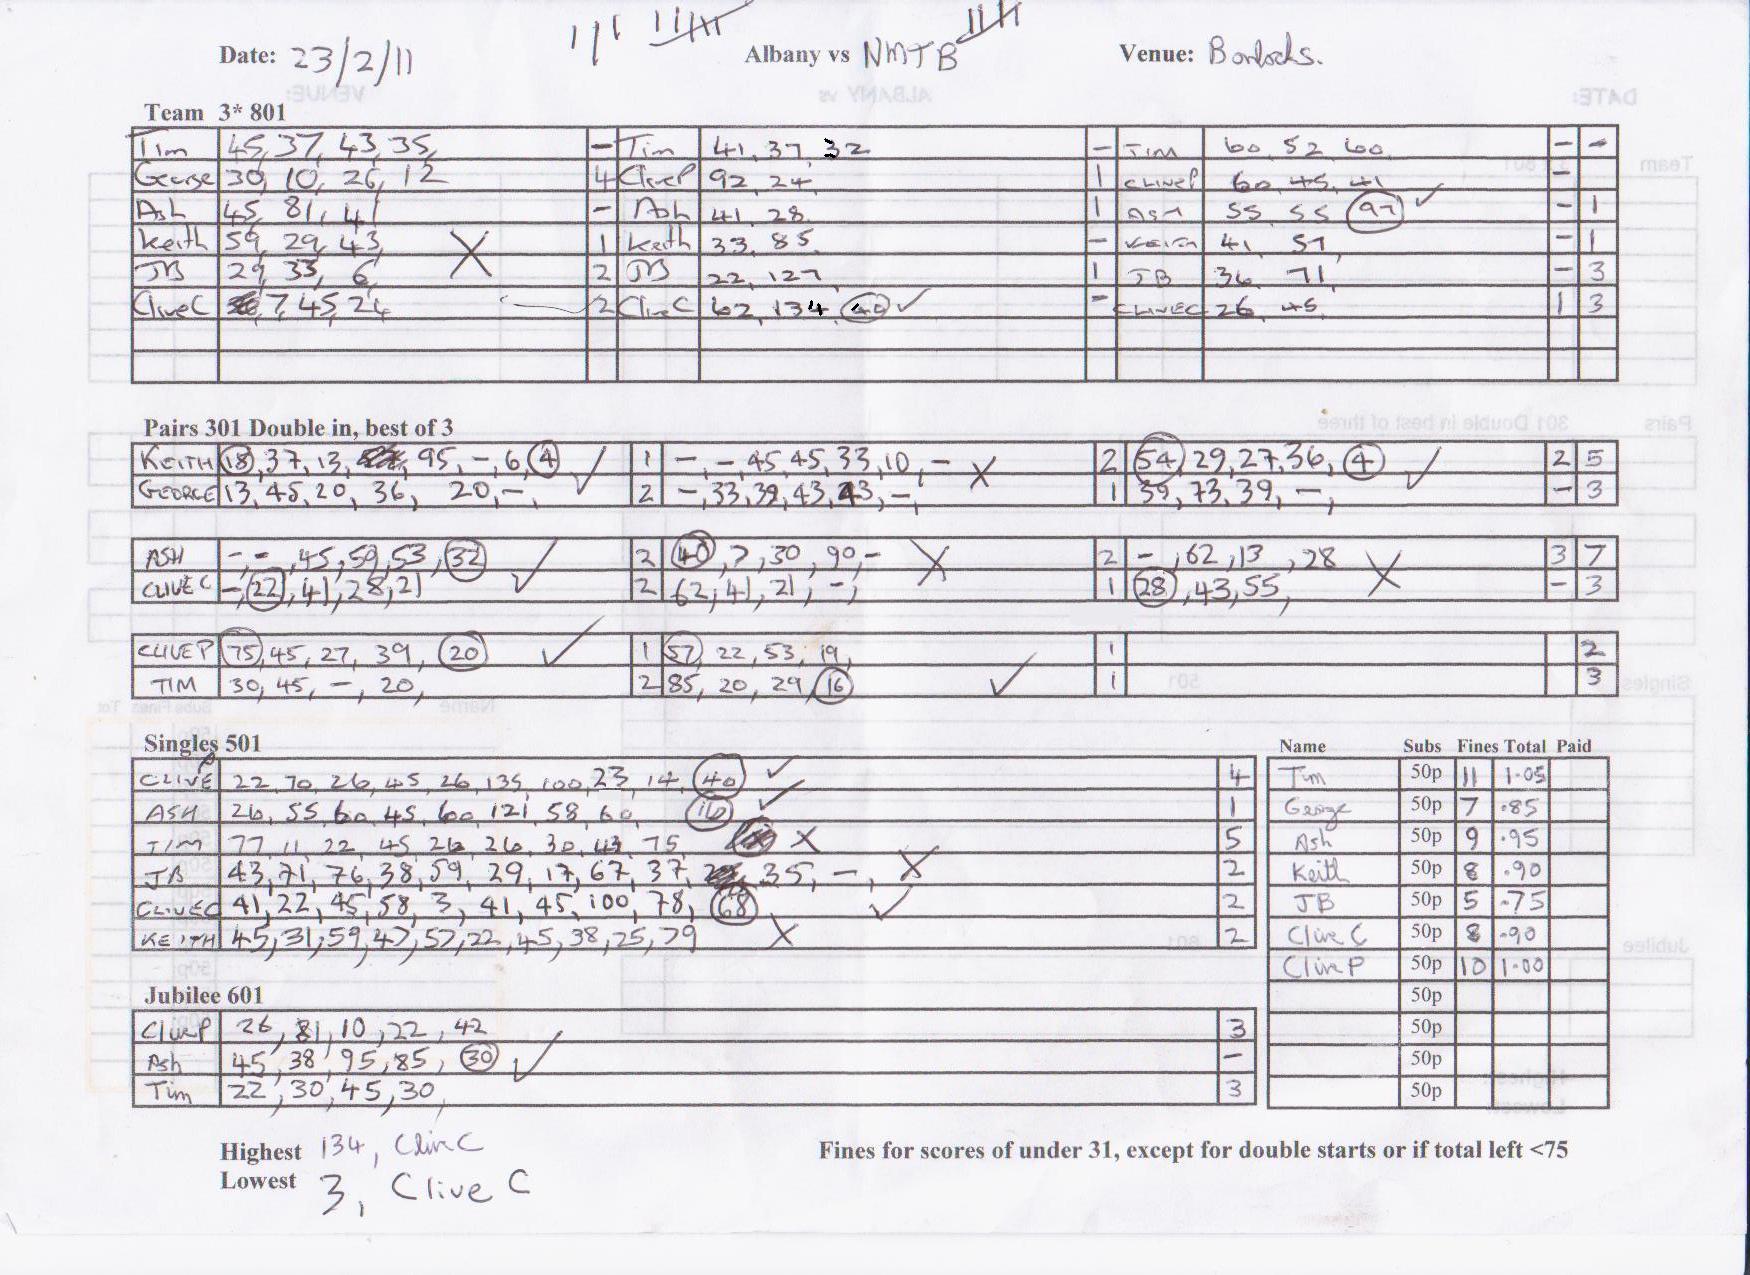 Date: 23/2/11 Albany vs NMTB Venue:
Team 3* 801
Tim 45, 37, 43, 35, - Tim 41, 37, 32 - TIM 60, 52, 60, - -
George 30, 10, 26, 12 4 CliveP 92, 24, 1 CLIVEP 60, 45, 41 -
Ash 45, 81, 41 - Ash 41, 28, 1 ASH 55, 55, 97 ✓ - 1
Keith 59, 29, 43, X 1 Keith 33, 85, - KEITH 41, 57, - 1
JB 29, 33, 6, 2 JB 22, 127, 1 JB 36, 71, - 3
CliveC 7, 45, 24 2 CliveC 62, 134, 40 ✓ - CLIVEC 26, 45, 1 3
Pairs 301 Double in, best of 3
KEITH 18, 37, 13, 95, -, 6, 4 ✓ 1 -, -, 45, 45, 33, 10, - X 2 54, 29, 27, 36, 4 ✓ 2 5
GEORGE 13, 45, 20, 36, 20, -, 2 -, 33, 39, 43, 43, -, 1 39, 73, 39, -, - 3
ASH -, -, 45, 59, 53, 32 ✓ 2 40, 7, 30, 90, - X 2 -, 62, 13, 28 X 3 7
CLIVE C -, 22, 41, 28, 21 2 62, 41, 21, -, 1 28, 43, 55, - 3
CLIVE P 75, 45, 27, 39, 20 ✓ 1 57, 22, 53, 19, 1 2
TIM 30, 45, -, 20, 2 85, 20, 29, 16 ✓ 1 3
Singles 501
CLIVE P 22, 70, 26, 45, 26, 135, 100, 23, 14, 40 ✓ 4
ASH 26, 55, 60, 45, 60, 121, 58, 60, 16 ✓ 1
TIM 77, 11, 22, 45, 26, 26, 30, 43, 75, X 5
JB 43, 71, 76, 38, 59, 29, 17, 67, 37, 35, -, X 2
CLIVEC 41, 22, 45, 58, 3, 41, 45, 100, 78, 68 ✓ 2
KEITH 45, 31, 59, 47, 57, 22, 45, 38, 25, 79 X 2
Name Subs Fines Total Paid
Tim 50p 11 1.05
George 50p 7 .85
Ash 50p 9 .95
Keith 50p 8 .90
JB 50p 5 .75
Clive C 50p 8 .90
Clive P 50p 10 1.00
50p
50p
50p
50p
Jubilee 601
CliveP 26, 81, 10, 22, 42 3
Ash 45, 38, 95, 85, 30 ✓ -
Tim 22, 30, 45, 30, 3
Highest 134, Clive C
Lowest 3, Clive C
Fines for scores of under 31, except for double starts or if total left <75